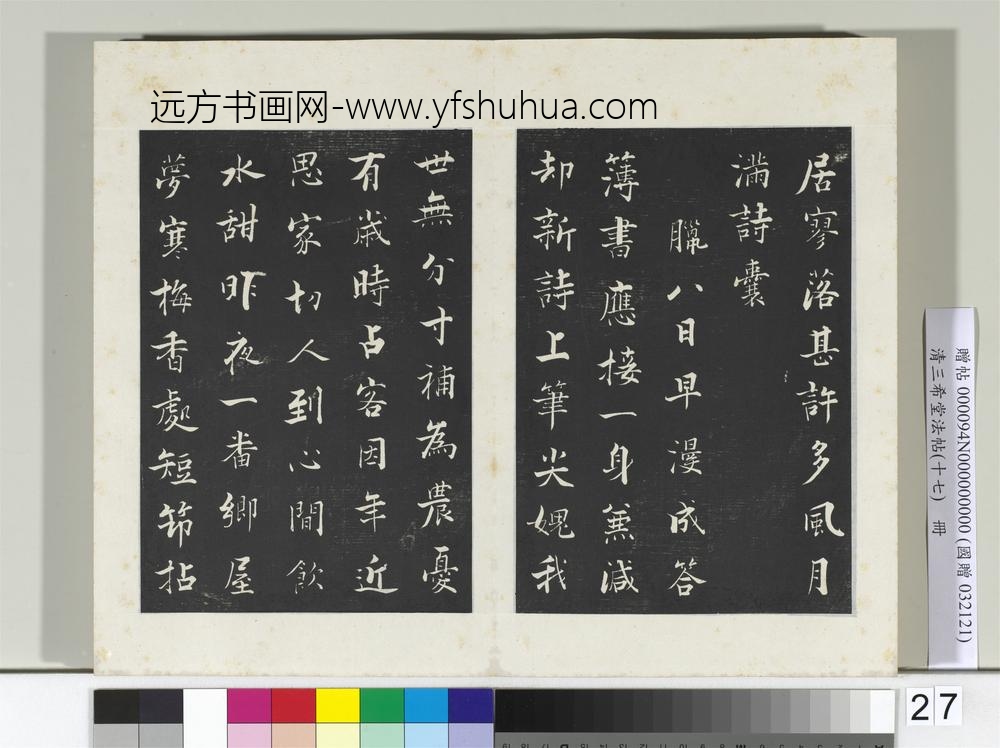 远方书画网-www.yfshuhua.com
居寥落甚許多風月
滿詩囊
臘八日早漫成答
簿書應接一身兼減
却新詩上筆尖媿我
世無分寸補為農憂
有歲時占客因年近
思家切人到心間飲
水甜昨夜一番鄉屋
夢寒梅香處短筇拈
贈帖 000094N000000000 (國贈 032121)
清三希堂法帖(十七) 冊
27